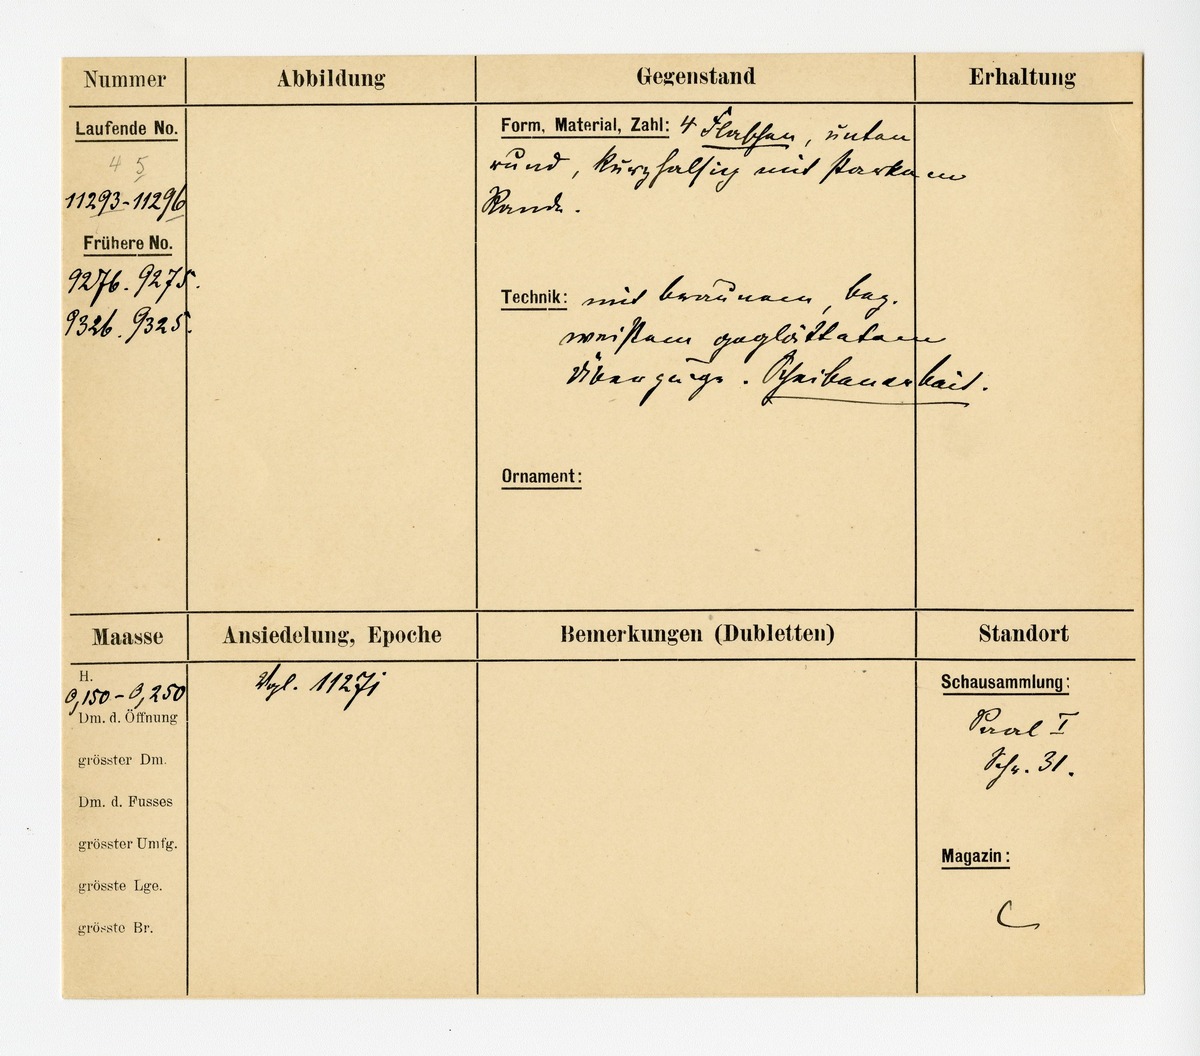 Nummer
Abbildung
Gegenstand
Erhaltung
Laufende No.
4 5
11293-11296
Frühere No.
9276. 9275.
9326. 9325.
Form, Material, Zahl: 4 Flaschen, unten
rund, kurzhalsig mit starkem
Rande.
Technik: mit braunem, bez.
weißem geglättetem
Überzuge. Scheibenarbeit.
Ornament:
Maasse
Ansiedelung, Epoche
Bemerkungen (Dubletten)
Standort
H.
0,150-0,250
Dm. d. Öffnung
grösster Dm.
Dm. d. Fusses
grösster Umfg.
grösste Lge.
grösste Br.
Vgl. 11271
Schausammlung:
Saal I
Schr. 31.
Magazin:
C